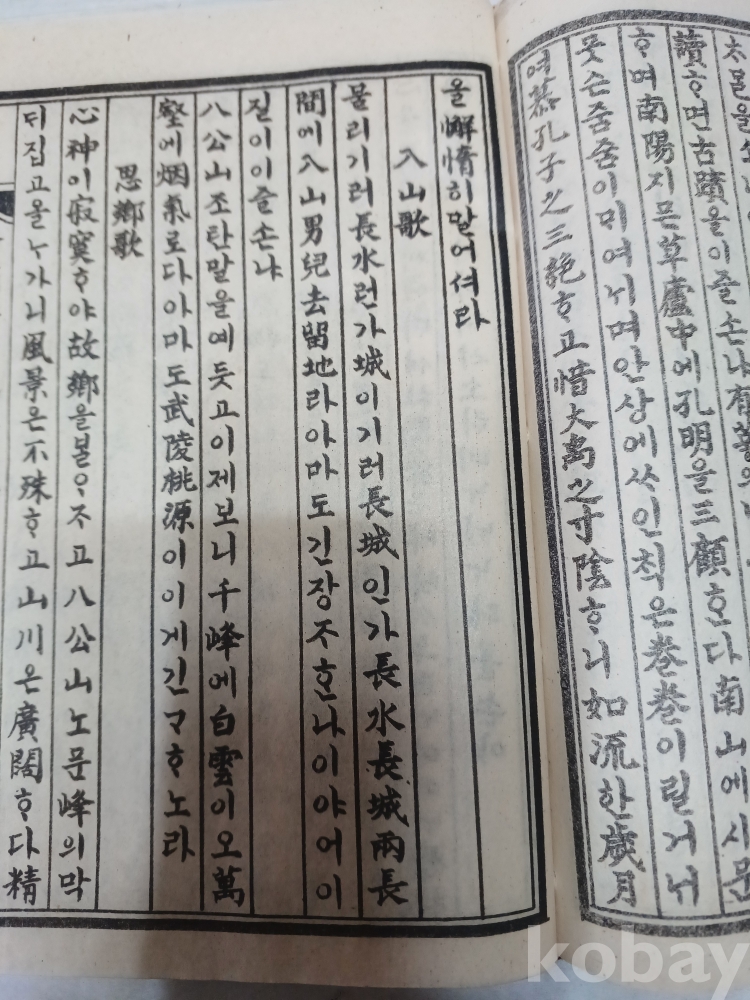 讀ᄒᆞ면古蹟을이즐손냐有
ᄒᆞ며南陽지믄草廬中에孔明을三顧ᄒᆞᆫ다南山에사문
못슨줌줌이미여시며안상에쓰인칙은卷卷이릴거시
여慕孔子之三絶ᄒᆞ고惜大禹之寸陰ᄒᆞ니如流한歲月
을懈惰히말어셔라
入山歌
물리기러長水런가城이기러長城인가長水長城兩長
間에入山男兒去留地라아마도긴장ᄌᆞᄒᆞᆫ나이야어이
질이이즐손냐
八公山조탄말을예듯고이제보니千峰에白雲이오萬
壑에烟氣로다아마도武陵桃源이이게긴ᄀᆞᄒᆞ노라
思鄕歌
心神이寂寞ᄒᆞ야故鄕을볼ᄋᆞᄌᆞ고八公山노문峰의막
ᄃᆡ집고올ᄂᆞ가니風景은不殊ᄒᆞ고山川은廣闊ᄒᆞ다精
kobay